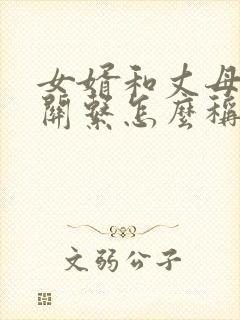 女婿和丈母
關繫怎麽稱
文弱公子